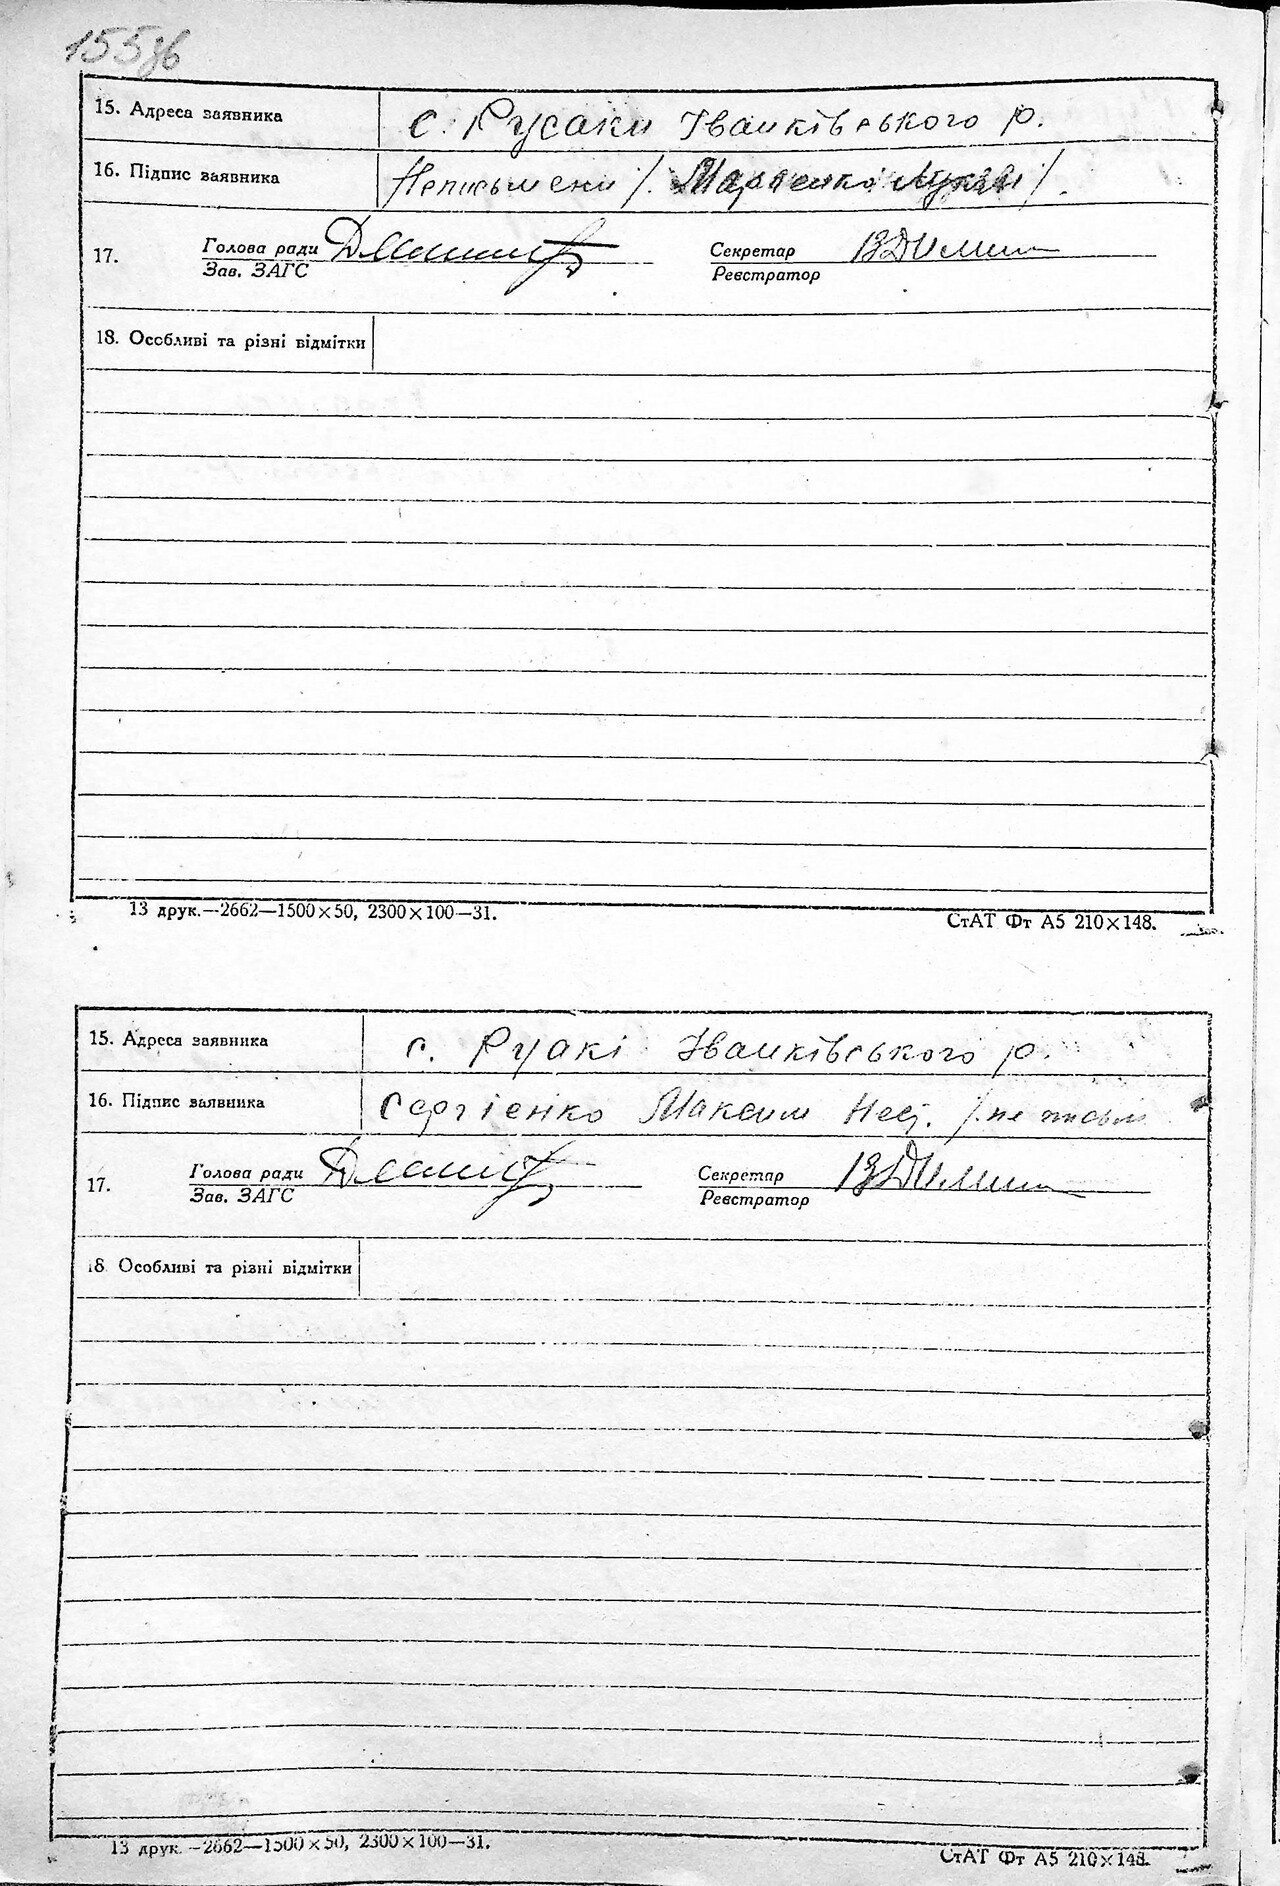 155зв
15. Адреса заявника с. Русаки Іванківського р.
16. Підпис заявника Неписьмени /. Марченко Лукян /.
17. Голова ради Секретар
Зав. ЗАГС Реєстратор
18. Особливі та різні відмітки
13 друк.—2662—1500×50, 2300×100—31. СтАТ Фт А5 210×148.
15. Адреса заявника с. Руакі Іванківського р.
16. Підпис заявника Сергієнко Максим /не письм
17. Голова ради Секретар
Зав. ЗАГС Реєстратор
18 Особливі та різні відмітки
13 друк.—2662—1500×50, 2300×100—31. СтАТ Фт А5 210×148.